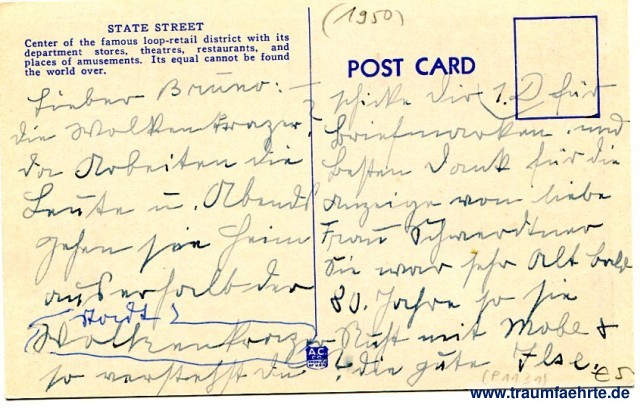 STATE STREET
Center of the famous loop-retail district with its
department stores, theatres, restaurants, and
places of amusements. Its equal cannot be found
the world over.
Lieber Bruno:
die Wolkenkrazer
da Arbeiten die
Leute u. Abends
gehen sie heim
auserhalb der
Stadt
Wolkenkrazer
so verstehst du
(1950)
POST CARD
schicke dir 1.D für
Briefmarken und
besten Dank für die
Anzeige von liebe
Frau Schwerdtner
Sie war sehr alt bald
80 Jahre so sie
Ruht mit Mobe +
die gute Ilse.
A.C.
www.traumfaehrte.de